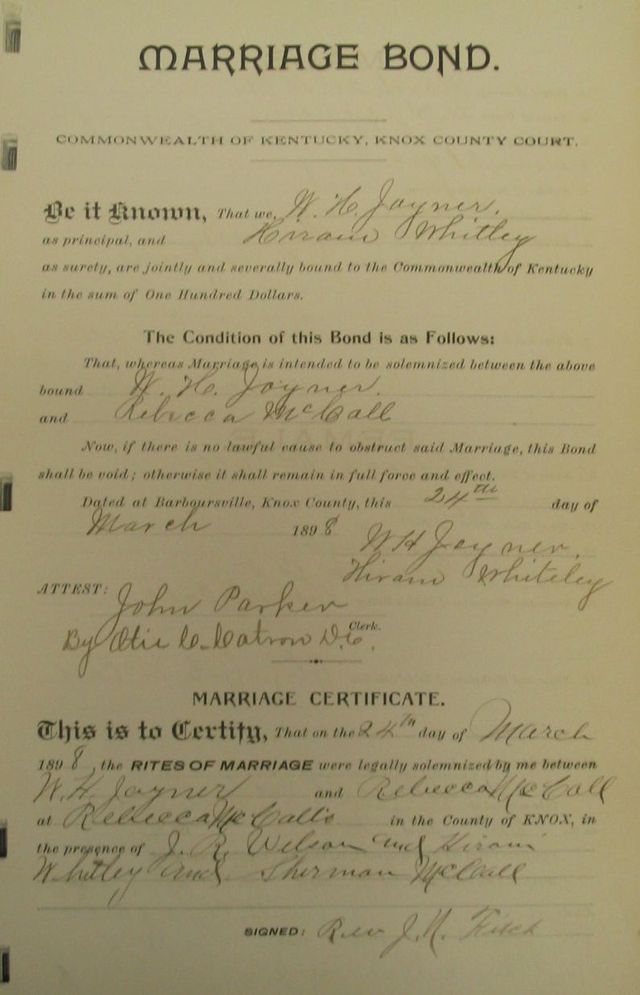 MARRIAGE BOND.
COMMONWEALTH OF KENTUCKY, KNOX COUNTY COURT.
Be it Known, That we, W. H. Joyner.
as principal, and Hiram Whitley
as surety, are jointly and severally bound to the Commonwealth of Kentucky
in the sum of One Hundred Dollars.
The Condition of this Bond is as Follows:
That, whereas Marriage is intended to be solemnized between the above
bound W. H. Joyner.
and Rebecca McCall
Now, if there is no lawful cause to obstruct said Marriage, this Bond
shall be void; otherwise it shall remain in full force and effect.
Dated at Barboursville, Knox County, this 24th day of
March 1898
W H Joyner.
Hiram Whiteley
ATTEST: John Parker
Clerk.
By Otis C. Catron D.C.
MARRIAGE CERTIFICATE.
This is to Certify, That on the 24th day of March
1898, the RITES OF MARRIAGE were legally solemnized by me between
W. H. Joyner and Rebecca McCall
at Rebecca McCall's in the County of KNOX, in
the presence of J. R. Wilson and Hiram
Whitley and Sherman McCall
SIGNED: Rev J. N.